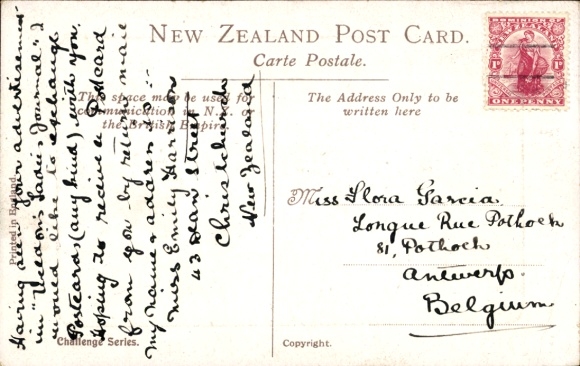 NEW ZEALAND POST CARD.
Carte Postale.
DOMINION OF
NEW ZEALAND
1D 1D
ONE PENNY
This space may be used for
communication in N.Z. or
the British Empire.
The Address Only to be
written here
Having seen your advertisement
in "Weldon's Ladies Journal" I
would like to exchange
Postcards (any kind) with you.
Hoping to receive a Postcard
from you by return mail
My name & address is :-
Miss Emily Harrison
43 Dean Street
Christchurch
New Zealand
Miss Flora Garcia
Longue Rue Pothoek
81, Pothoek
Antwerp.
Belgium
Printed in England.
Challenge Series.
Copyright.